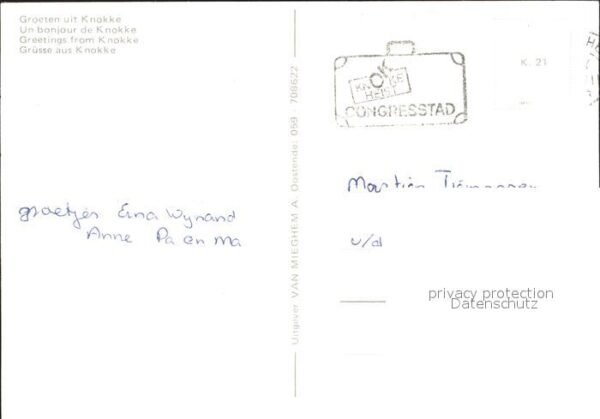 Groeten uit Knokke
Un bonjour de Knokke
Greetings from Knokke
Grüsse aus Knokke
groetjes Erna Wynand
Anne Pa en Ma
Uitgever VAN MIEGHEM A. Oostende: 059 708622
OK
KNOKKE
HEIST
CONGRESSTAD
K. 21
v/d
privacy protection
Datenschutz